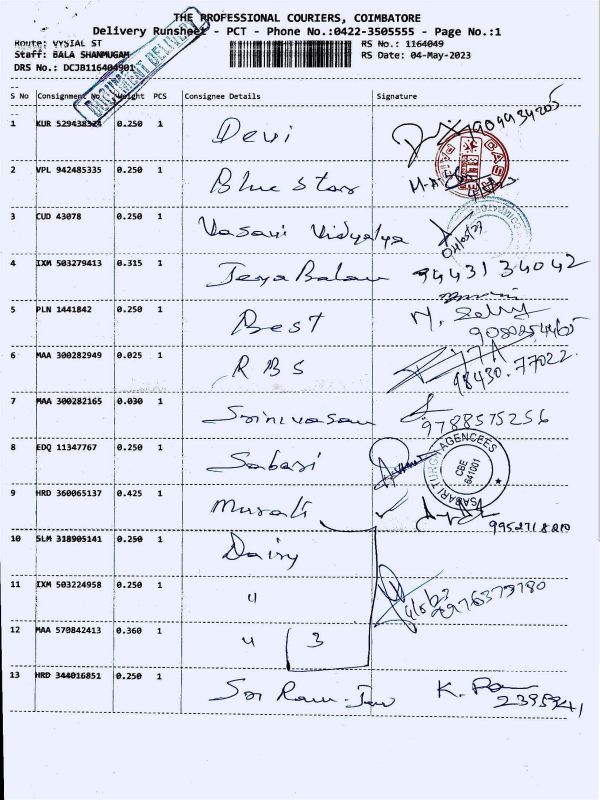 THE PROFESSIONAL COURIERS, COIMBATORE
Delivery Runsheet - PCT - Phone No.:0422-3505555 - Page No.:1
Route: VYSIAL ST RS No.: 1164049
Staff: BALA SHANMUGAM RS Date: 04-May-2023
DRS No.: DCJB116404901
DOCUMENT DELIVERY
S No Consignment No Weight PCS Consignee Details Signature
1 KUR 529438324 0.250 1 Devi
2 VPL 942485335 0.250 1 Blue Star
3 CUD 43078 0.250 1 Vasavi Vidyalya
4 IXM 503279413 0.315 1 Jeya Balan 94431 34042
5 PLN 1441842 0.250 1 Best
6 MAA 300282949 0.025 1 RBS 98430.77022
7 MAA 300282165 0.030 1 Srinivasan 9788575256
8 EDQ 11347767 0.250 1 Sabari
SABARI TURG AGENCEES
CBE
641001
9 HRD 360065137 0.425 1 Murali
10 SLM 318905141 0.250 1 Dairy
11 IXM 503224958 0.250 1 "
12 MAA 570842413 0.360 1 " 3
13 HRD 344016851 0.250 1 Sri Ram K.
2395941